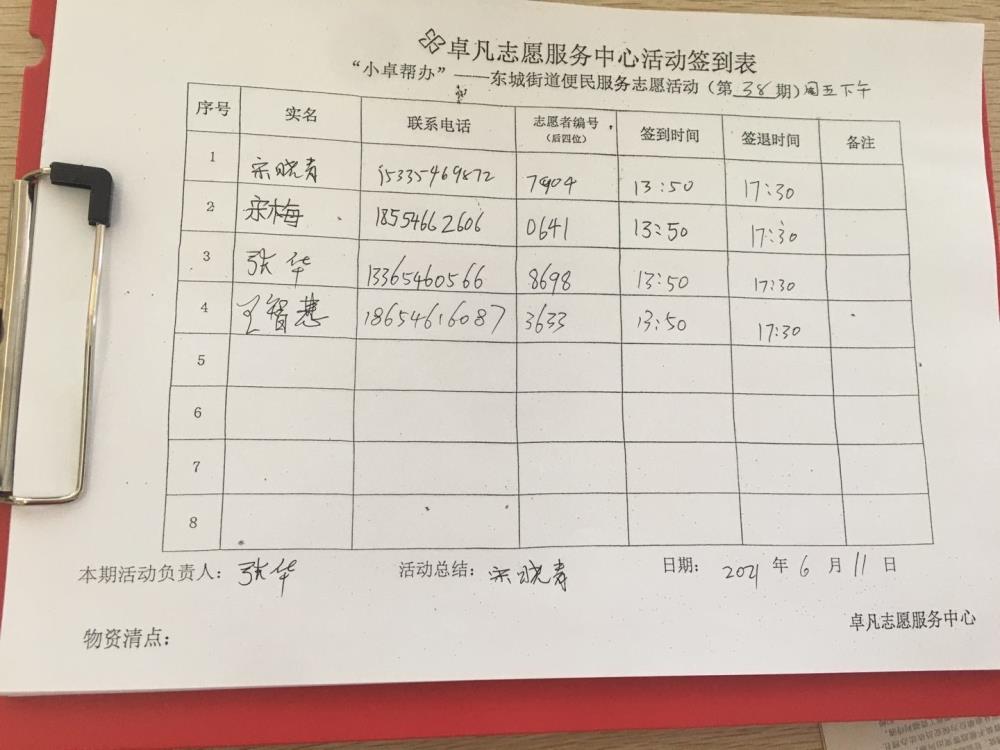 卓凡志愿服务中心活动签到表
“小卓帮办”——东城街道便民服务志愿活动（第 38 期）周五下午
序号 实名 联系电话 志愿者编号（后四位） 签到时间 签退时间 备注
1 宗晓青 15335469872 7904 13:50 17:30
2 宗梅 18554662606 0641 13:50 17:30
3 张华 13365460566 8698 13:50 17:30
4 王智慧 18654616087 3633 13:50 17:30
5
6
7
8
本期活动负责人：张华 活动总结：宗晓青 日期：2021 年 6 月 11 日
卓凡志愿服务中心
物资清点：